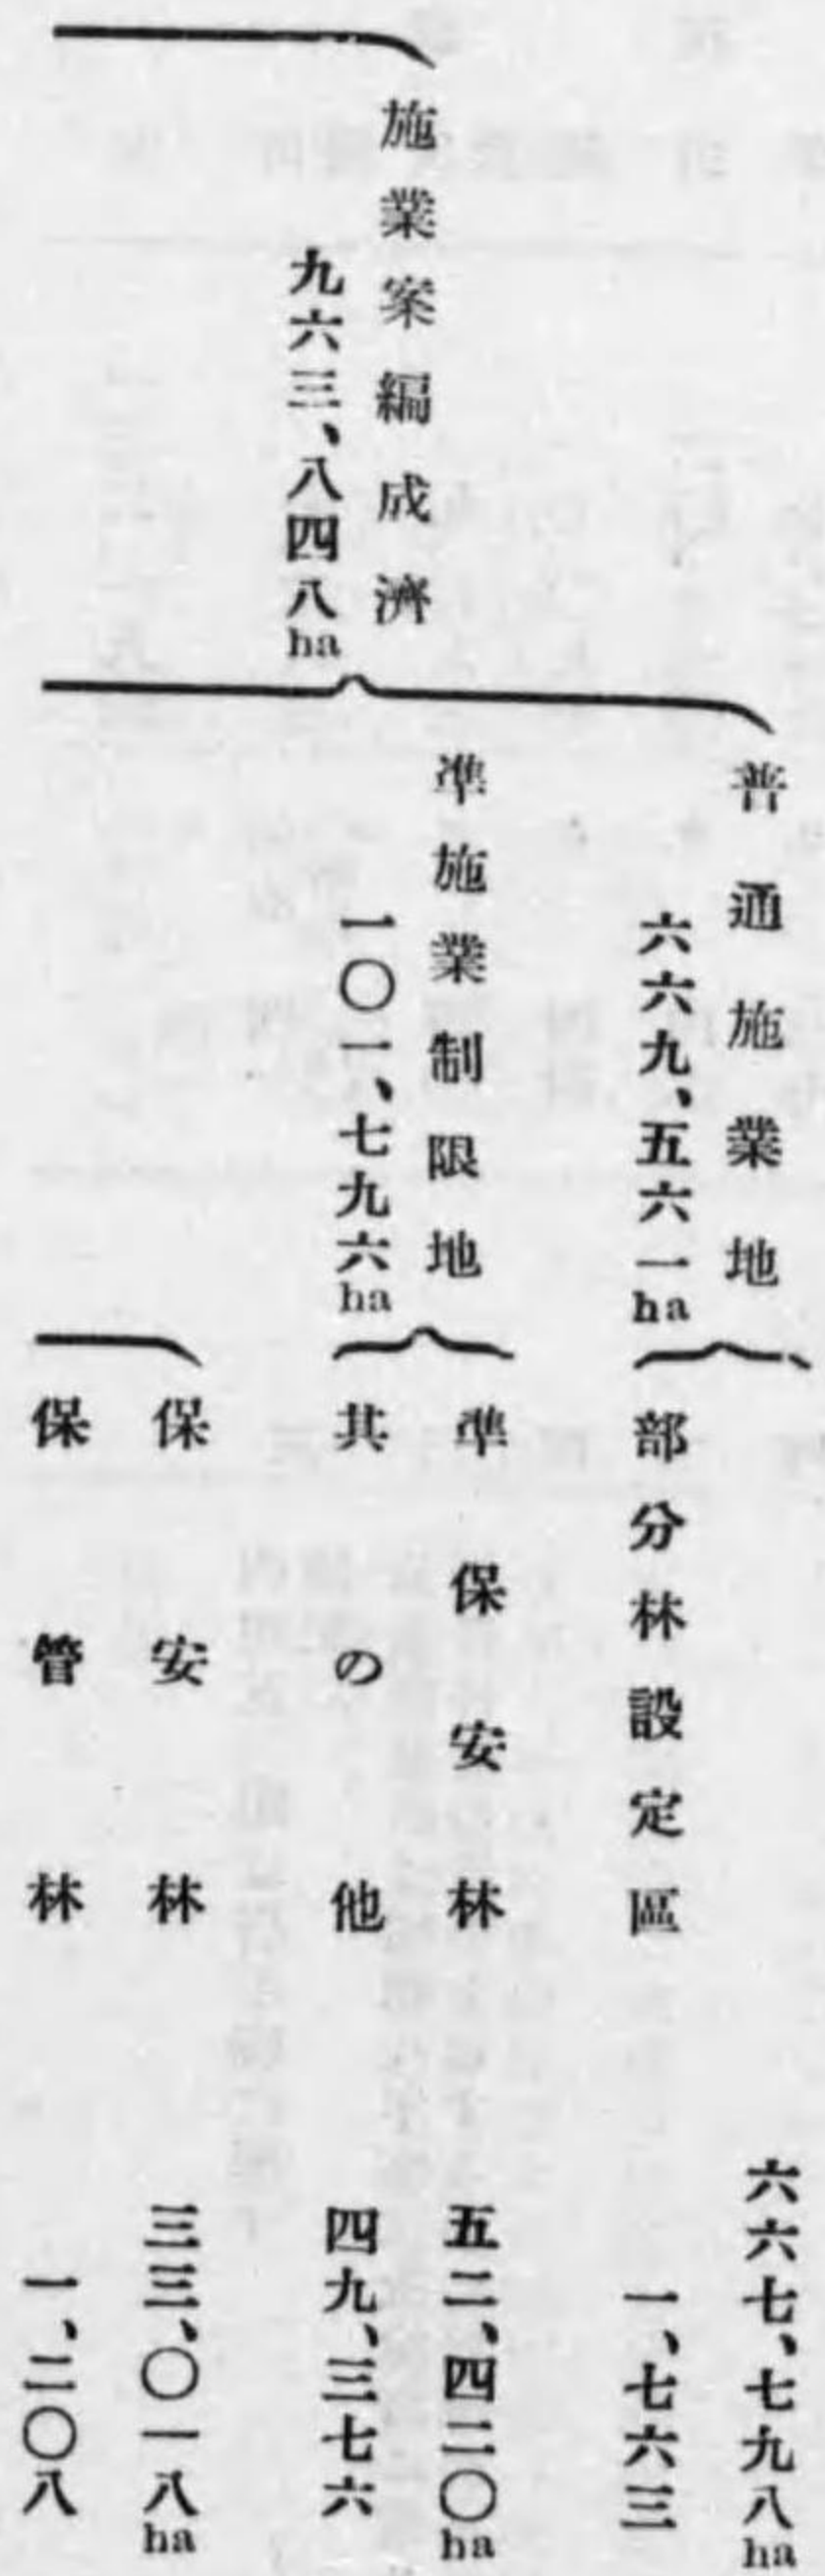 施業案編成濟
九六三、八四八ha
普通施業地
六六九、五六一ha
六六七、七九八ha
部分林設定區
一、七六三
準施業制限地
一〇一、七九六ha
準保安林
五二、四二〇ha
其の他
四九、三七六
保安林
三三、〇一八ha
保管林
一、二〇八